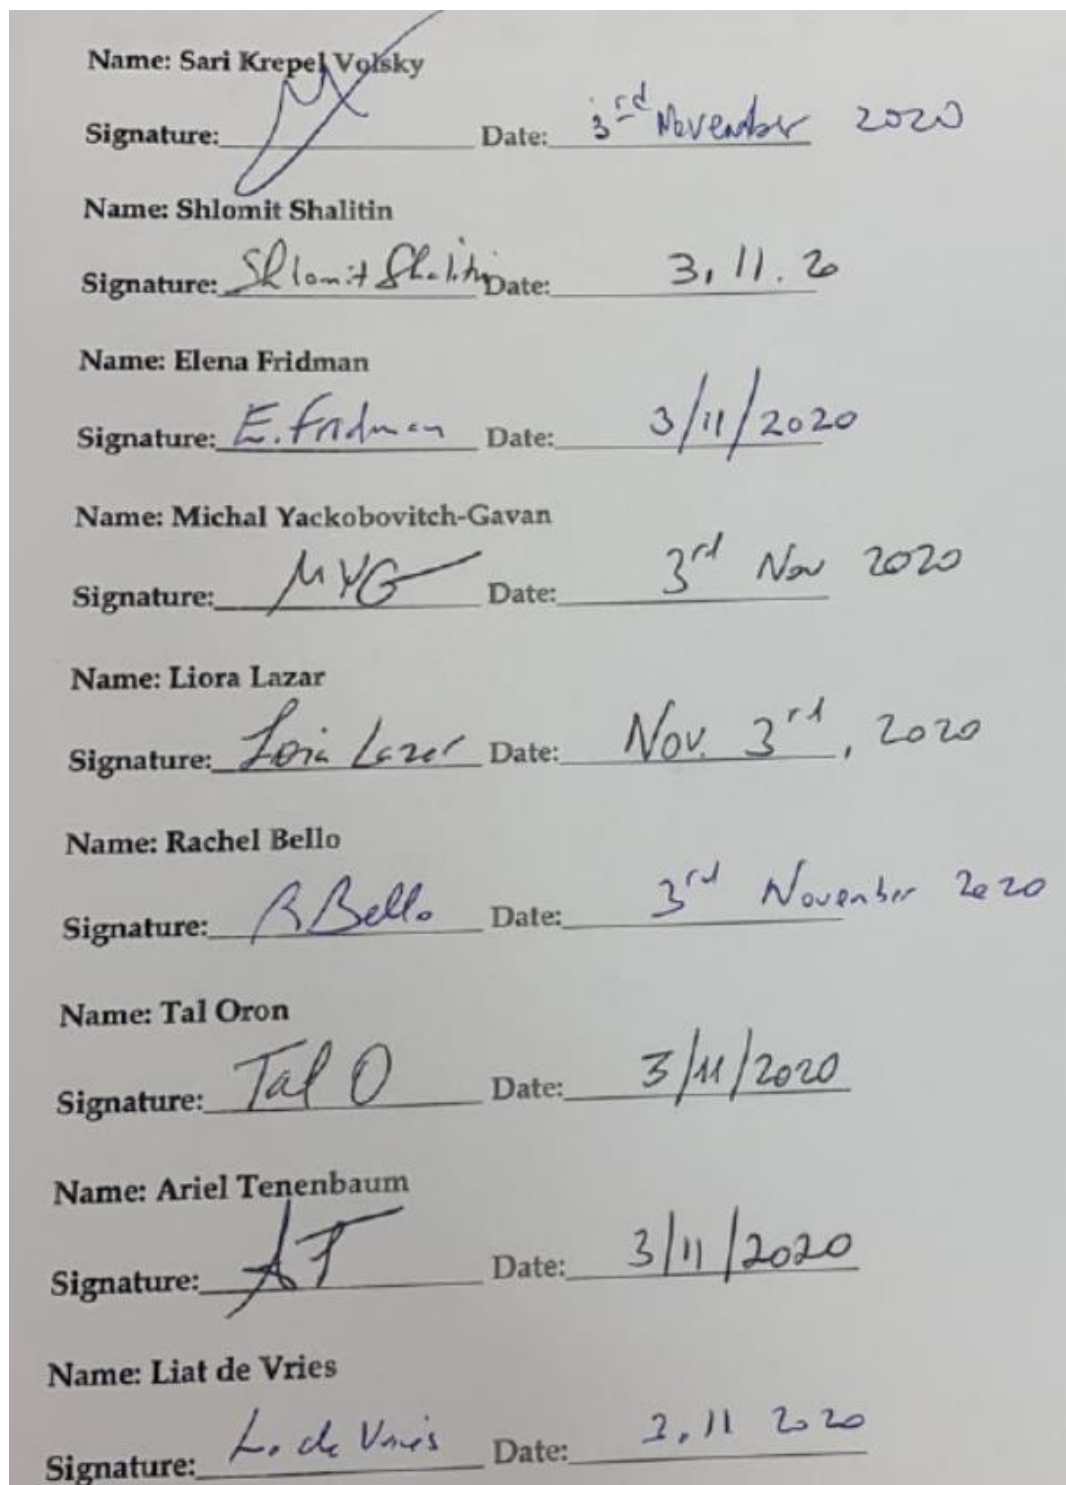 Name: Sari Krepel Volsky
Signature: Date: 3rd November 2020
Name: Shlomit Shalitin
Signature: Shlomit Shalitin Date: 3.11.20
Name: Elena Fridman
Signature: E. Fridman Date: 3/11/2020
Name: Michal Yackobovitch-Gavan
Signature: MYG Date: 3rd Nov 2020
Name: Liora Lazar
Signature: Lazar Date: Nov. 3rd, 2020
Name: Rachel Bello
Signature: R Bello Date: 3rd November 2020
Name: Tal Oron
Signature: Tal O Date: 3/11/2020
Name: Ariel Tenenbaum
Signature: AT Date: 3/11/2020
Name: Liat de Vries
Signature: L. de Vries Date: 3.11 2020